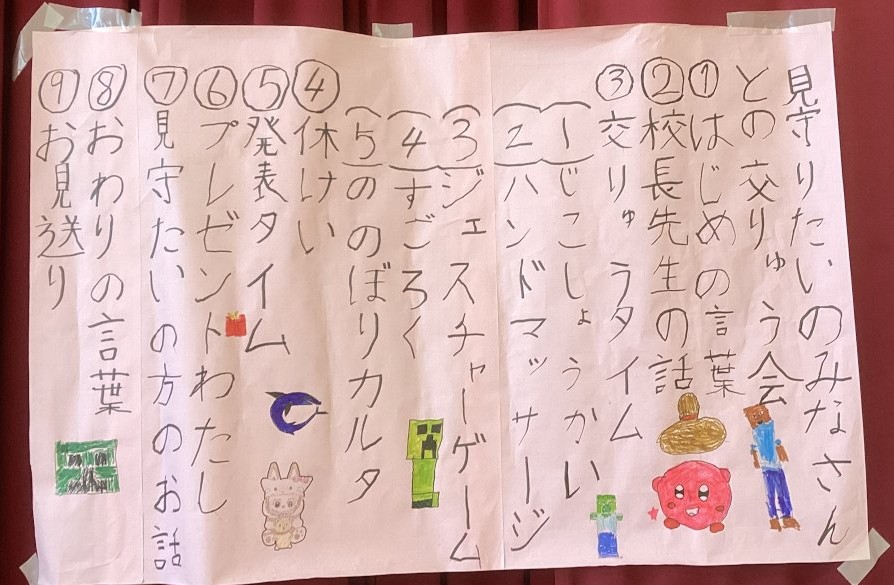 見守りたいのみなさん
との交りゅう会
①はじめの言葉
②校長先生の話
③交りゅうタイム
(1)じこしょうかい
(2)ハンドマッサージ
(3)ジェスチャーゲーム
(4)すごろく
(5)ののぼりカルタ
④休けい
⑤発表タイム
⑥プレゼントわたし
⑦見守たいの方のお話
⑧おわりの言葉
⑨お見送り